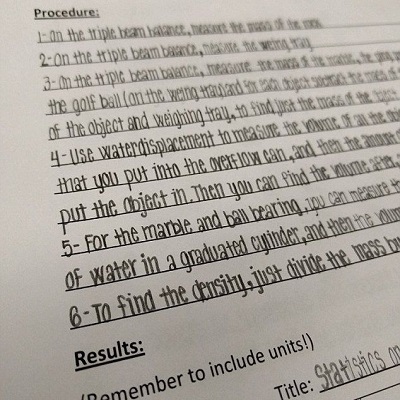 Procedure:
1- On the triple beam balance, measure the mass of the rock.
2- On the triple beam balance, measure the weing tray.
3- On the triple beam balance, measure the mass of the marble, the
the golf ball (on the weing tray) and for each object subtract the mass of
of the object and weighing tray, to find just the mass of the
4- Use water displacement to measure the volume of all the
that you put into the overflow can, and then the amount
put the object in. Then you can find the volume after
5- For the marble and ball bearing, you can measure the
of water in a graduated cylinder, and then the volum
6- To find the density, just divide the mass
Results:
(Remember to include units!)
Title: Statistics on